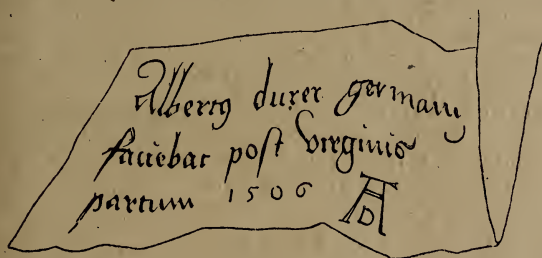 Albertꝯ durer germanꝯ
faciebat post Virginis
partum 1506 AD